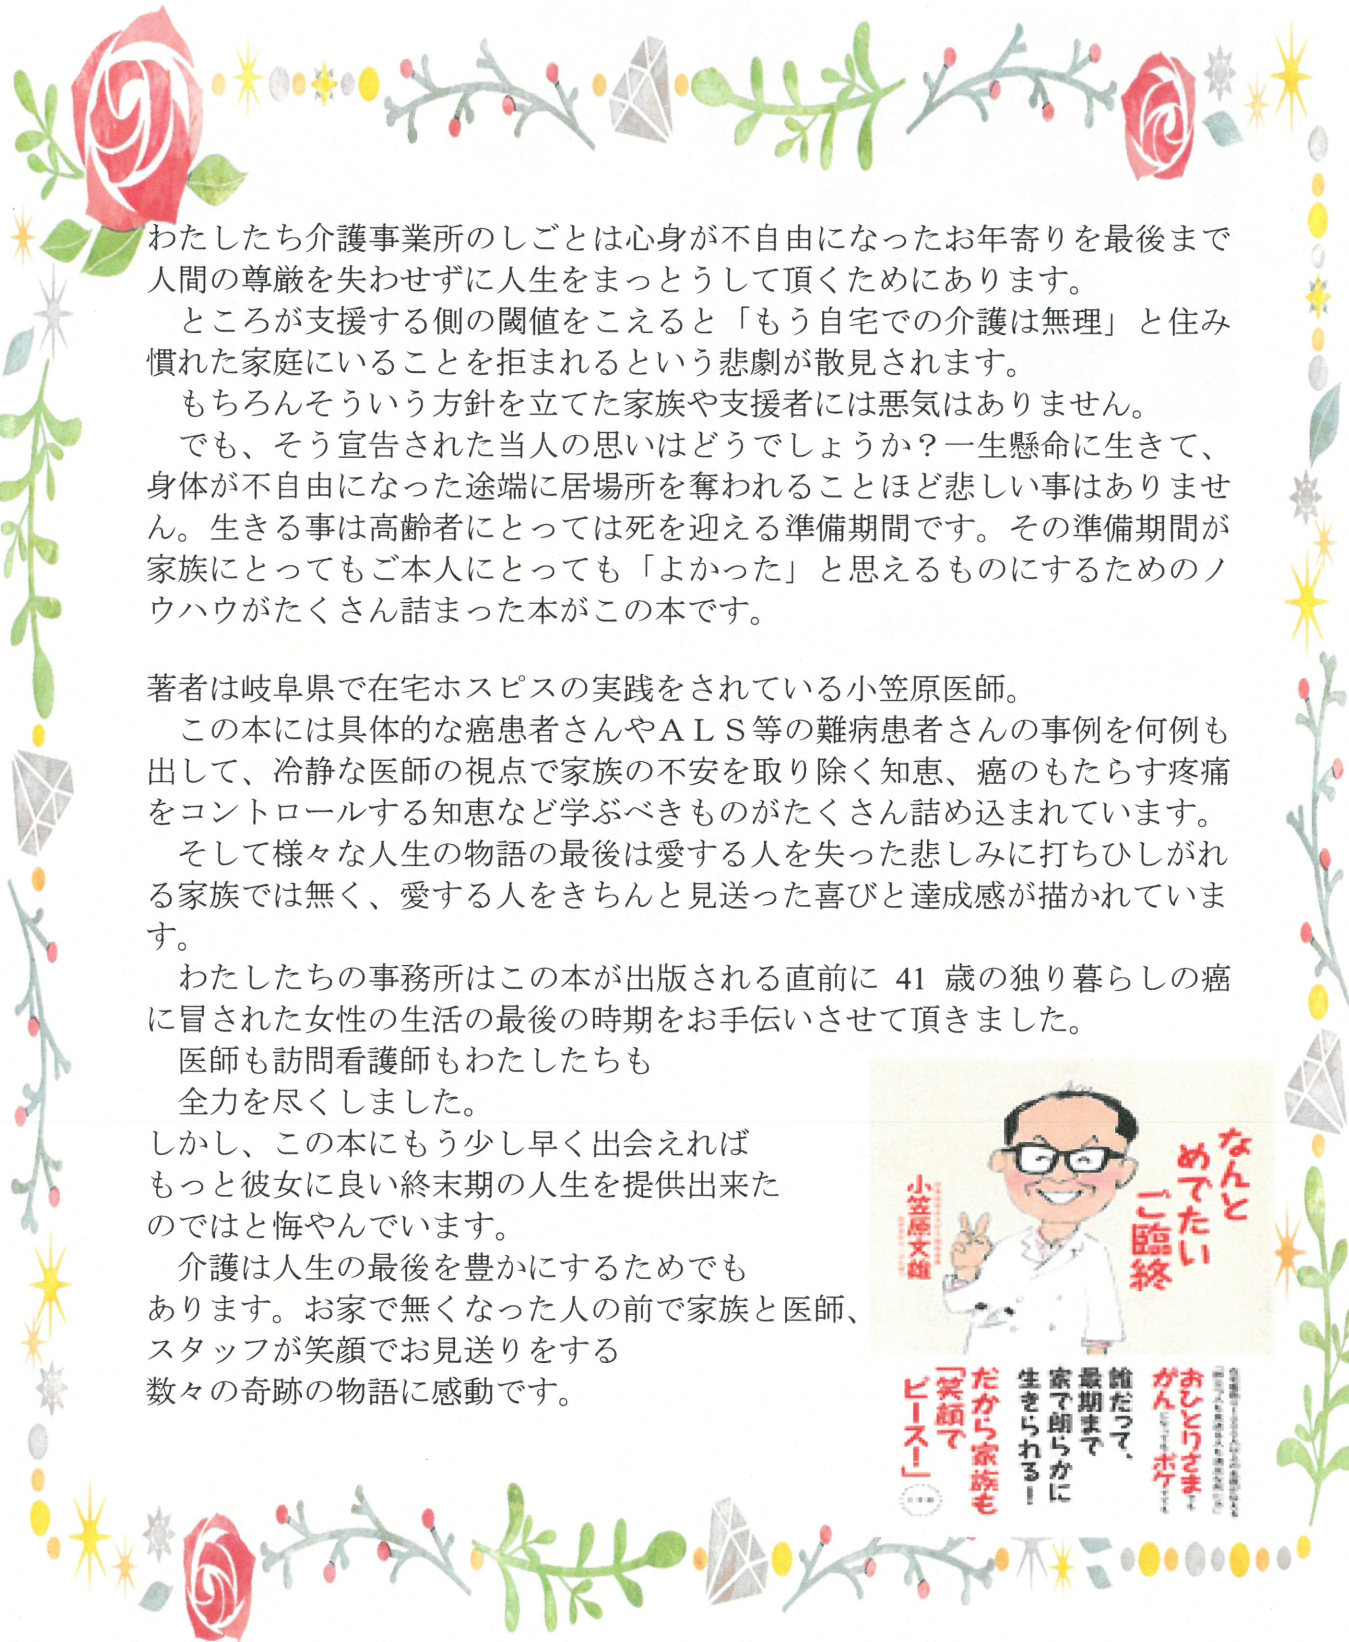 わたしたち介護事業所のしごとは心身が不自由になったお年寄りを最後まで
人間の尊厳を失わせずに人生をまっとうして頂くためにあります。
ところが支援する側の閾値をこえると「もう自宅での介護は無理」と住み
慣れた家庭にいることを拒まれるという悲劇が散見されます。
もちろんそういう方針を立てた家族や支援者には悪気はありません。
でも、そう宣告された当人の思いはどうでしょうか？一生懸命に生きて、
身体が不自由になった途端に居場所を奪われることほど悲しい事はありませ
ん。生きる事は高齢者にとっては死を迎える準備期間です。その準備期間が
家族にとってもご本人にとっても「よかった」と思えるものにするためのノ
ウハウがたくさん詰まった本がこの本です。
著者は岐阜県で在宅ホスピスの実践をされている小笠原医師。
この本には具体的な癌患者さんやＡＬＳ等の難病患者さんの事例を何例も
出して、冷静な医師の視点で家族の不安を取り除く知恵、癌のもたらす疼痛
をコントロールする知恵など学ぶべきものがたくさん詰め込まれています。
そして様々な人生の物語の最後は愛する人を失った悲しみに打ちひしがれ
る家族では無く、愛する人をきちんと見送った喜びと達成感が描かれていま
す。
わたしたちの事務所はこの本が出版される直前に 41 歳の独り暮らしの癌
に冒された女性の生活の最後の時期をお手伝いさせて頂きました。
医師も訪問看護師もわたしたちも
全力を尽くしました。
しかし、この本にもう少し早く出会えれば
もっと彼女に良い終末期の人生を提供出来た
のではと悔やんでいます。
介護は人生の最後を豊かにするためでも
あります。お家で無くなった人の前で家族と医師、
スタッフが笑顔でお見送りをする
数々の奇跡の物語に感動です。
なんと
めでたい
ご臨終
小笠原文雄
おひとりさまでも
がんになってもボケても
誰だって、
最期まで
家で朗らかに
生きられる！
だから家族も
「笑顔で
ピース！」